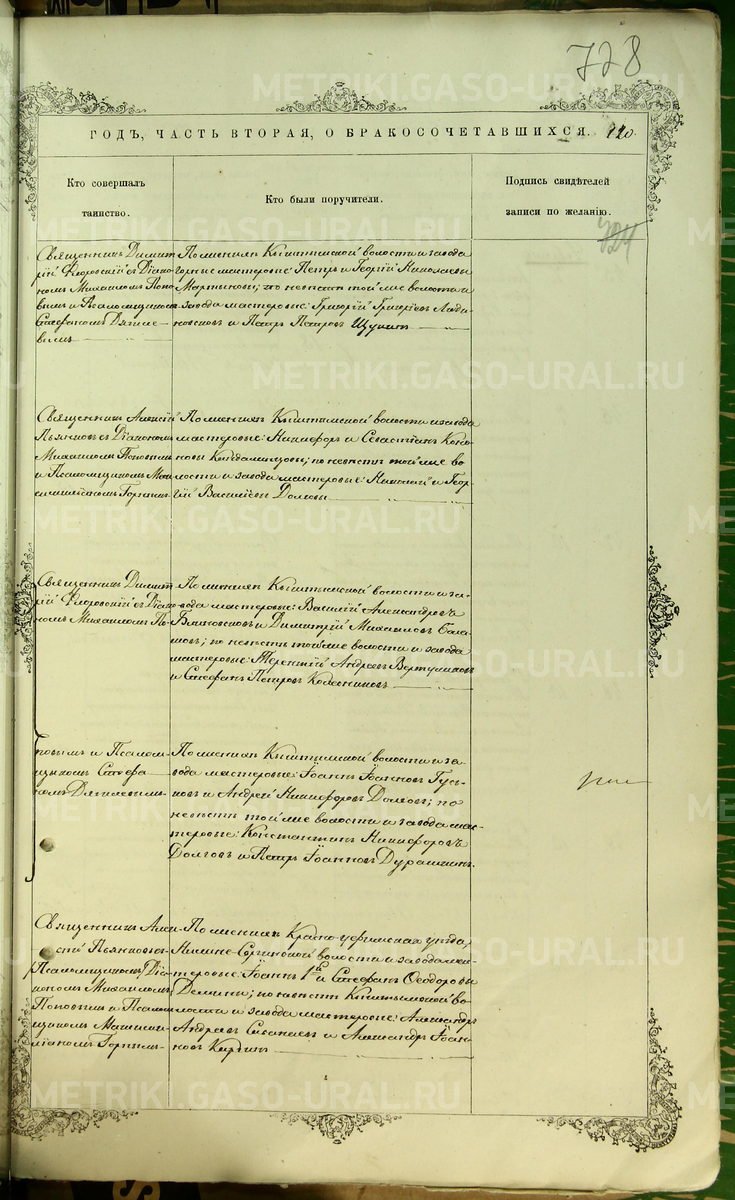 728
ГОДЪ, ЧАСТЬ ВТОРАЯ, О БРАКОСОЧЕТАВШИХСЯ.
Кто совершалъ
таинство.
Кто были поручители.
Подпись свидѣтелей
записи по желанію.
Священникъ Димит
рій Флоровскій съ Діако
номъ Михаиломъ Попо
вымъ и Псаломщикомъ
Стефаномъ Дягиле-
вымъ
По женихѣ Кыштымской волости и завода
горные мастеровые: Петръ и Георгій Николаевы
Мартыновы; по невѣстѣ той же волости и
завода мастеровые: Григорій Григорьевъ
и Петръ Петровъ Щукинъ
Священникъ Алексій
Пьянковъ съ Діакономъ
Михаиломъ Поповымъ
и Псаломщикомъ Мак
симиліаномъ
По женихѣ Кыштымской волости и завода
мастеровые: Никифоръ и Севастіанъ Коно
новы; по невѣстѣ той же во
лости и завода мастеровые: Николай и Геор
гій Васильевы Долговы
Священникъ Димит
рій Флоровскій съ Діако
номъ Михаиломъ По-
По женихѣ Кыштымской волости и за-
вода мастеровые: Василій Александровъ
Блиновсковъ и Димитрій Михаиловъ Бала
шовъ; по невѣстѣ той же волости и завода
мастеровые: Терентій Андреевъ Вертушковъ
и Стефанъ Петровъ Колесниковъ
повымъ и Псалом-
щикомъ Стефа
номъ Дягилевымъ
По женихѣ Кыштымской волости и за
вода мастеровые: Іоаннъ Іоанновъ Гусь-
ковъ и Андрей Никифоровъ Долговъ; по
невѣстѣ той же волости и завода мас-
теровые: Константинъ Никифоровъ
Долговъ и Петръ Іоанновъ Дурашкинъ.
Священникъ Алек
сій Пьянковъ съ
Псаломщикомъ Діа
кономъ Михаиломъ
Поповымъ и Псалом
щикомъ Максими
ліаномъ
По женихѣ Красноуфимскаго уѣзда,
Нижне-Сергинской волости и завода мас-
теровые: Іоаннъ 1й и Стефанъ Ѳеодоровы
Демины; по невѣстѣ Кыштымской во
лости и завода мастеровые: Александръ
Андреевъ и Александръ Іоан
новъ
METRIKI.GASO-URAL.RU